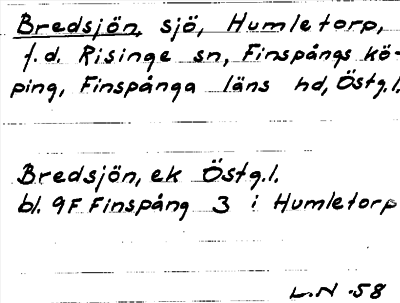 Bredsjön, sjö, Humletorp,
f.d. Risinge sn, Finspångs kö-
ping, Finspånga läns hd, Östg.l.
Bredsjön, ek Östg.l.
bl. 9F Finspång 3 i Humletorp
L.N. -58